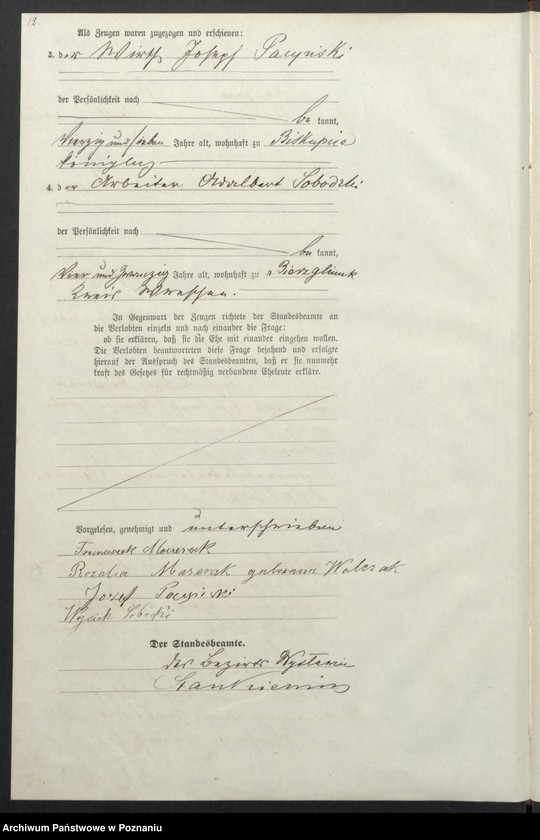 12.
Als Zeugen waren zugezogen und erschienen:
3. der Wirth Josef Pacyński
der Persönlichkeit nach
be kannt,
Vierzig und sieben Jahre alt, wohnhaft zu Biskupice
4. der Arbeiter Adalbert
der Persönlichkeit nach
be kannt,
Vier und zwanzig Jahre alt, wohnhaft zu
Kreis Wreschen.
In Gegenwart der Zeugen richtete der Standesbeamte an
die Verlobten einzeln und nach einander die Frage:
ob sie erklären, daß sie die Ehe mit einander eingehen wollen.
Die Verlobten beantworteten diese Frage bejahend und erfolgte
hierauf der Ausspruch des Standesbeamten, daß er sie nunmehr
kraft des Gesetzes für rechtmäßig verbundene Eheleute erkläre.
Vorgelesen, genehmigt und unterschrieben
Rozalia geborene Walczak
Józef
Der Standesbeamte.
des Bezirks
Archiwum Państwowe w Poznaniu